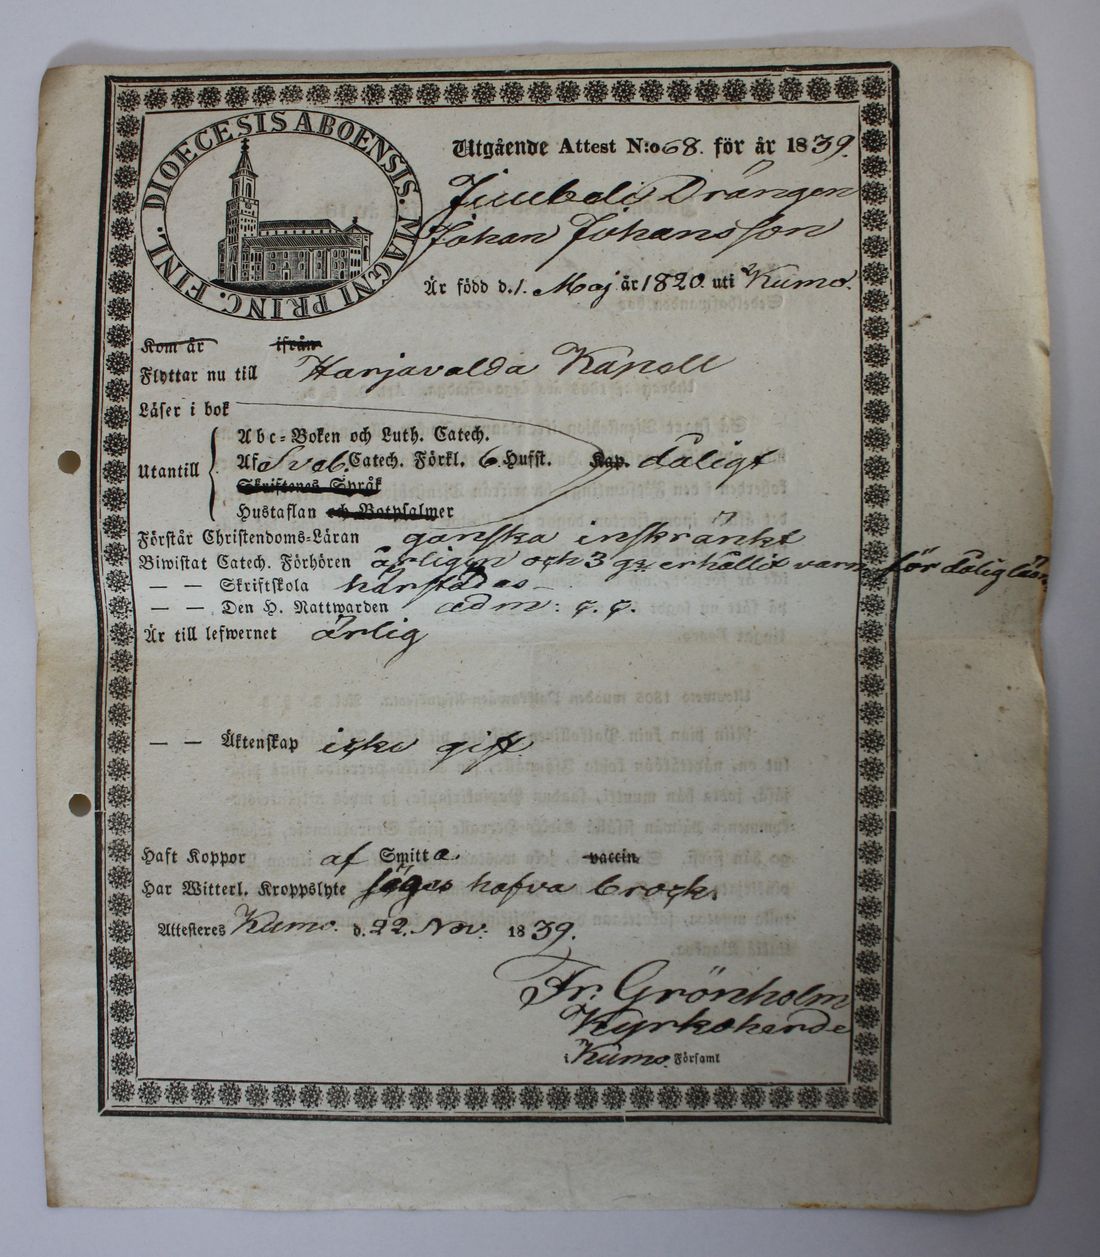 DIOECESIS ABOENSIS. MAGNI PRINC. FINL.
Utgående Attest N:o 68. för år 1839.
Drängen
Johan Johansson
Är född d. 1. Maj år 1820 uti Kumo.
Kom år ifrån
Flyttar nu till Harjavalda Kapell
Läser i bok
Utantill
Abc-Boken och Luth. Catech.
Af Sveb. Catech. Förkl. 6. Husst. Kap. dåligt
Skriftenes Språk
Hustaflan och Botpsalmer
Förstår Christendoms-Läran ganska inskränkt
Biwistat Catech. Förhören årligen och 3 erhållit varn för dålig läsn
— — Skriftskola härstädes
— — Den H. Nattwarden adm:
Är till lefwernet ärlig
— — Äktenskap icke gift
Haft Koppor af Smitta vaccin.
Har Witterl. Kroppslyte säges hafva bråck.
Attesteres Kumo. d. 22. Nov. 1839.
Fr: Grönholm
Kyrkoherde
i Kumo. Församl